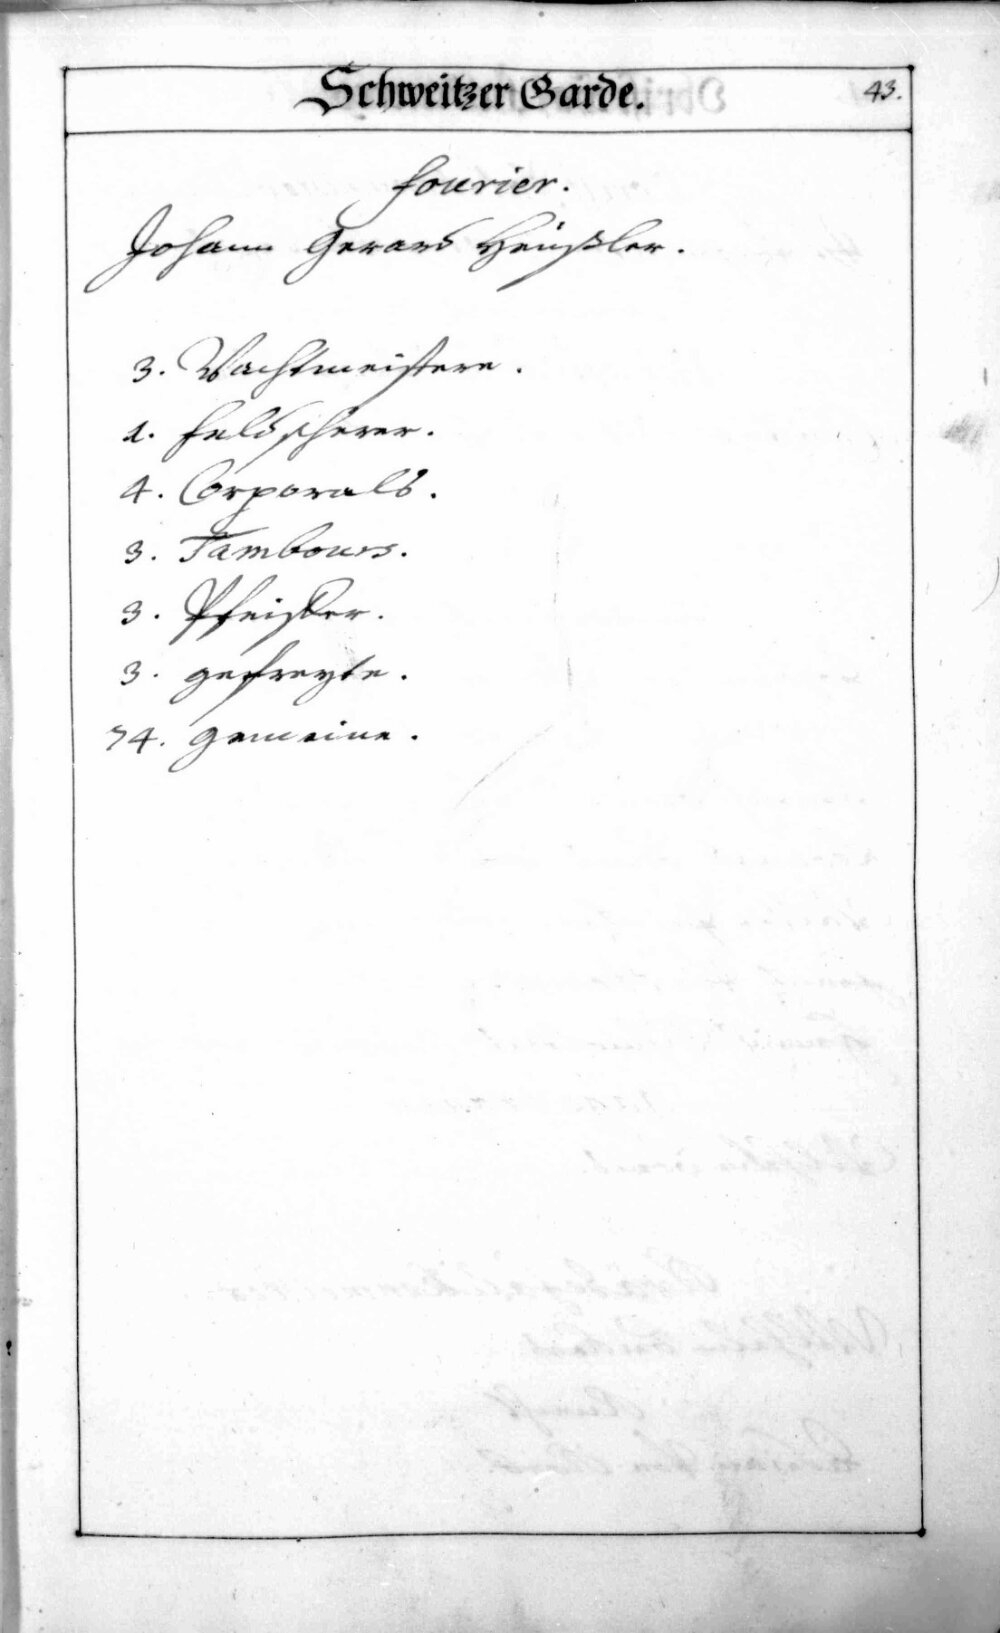 Schweitzer Garde.
43.
Fourier.
Johann Gerard Heußler.
3. Wachtmeistere.
1. Feldscherer.
4. Corporals.
3. Tambours.
3. Pfeiffer.
3. gefreyte.
74. gemeine.